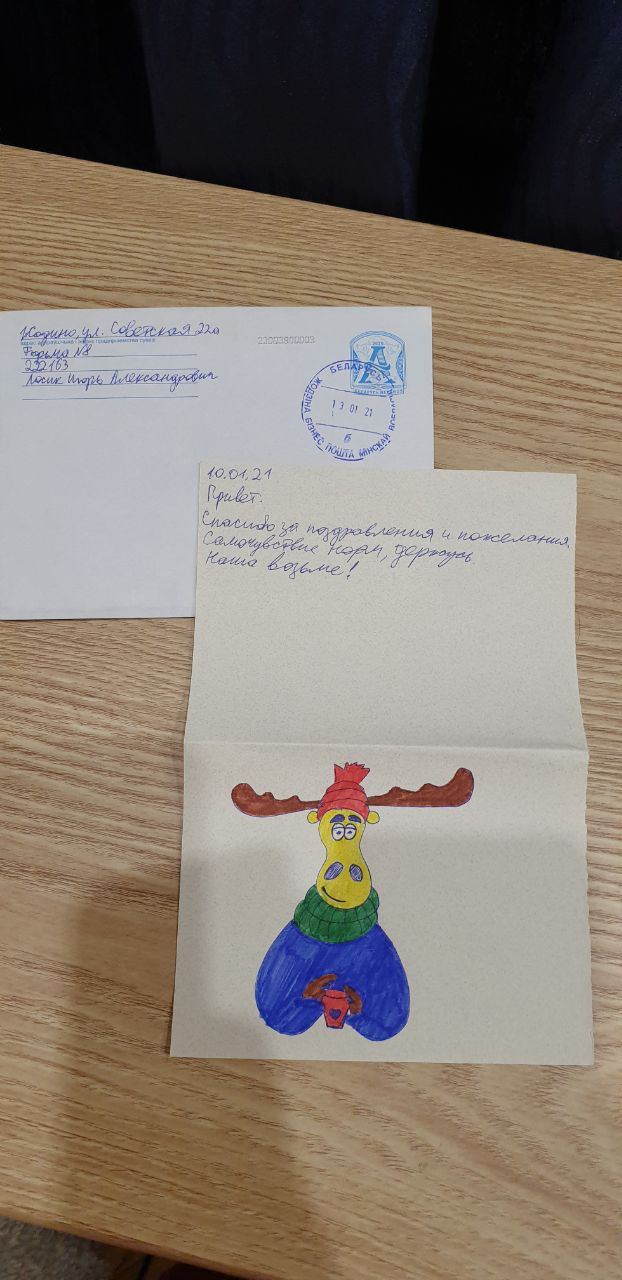 Жодино, ул. Советская 22а
Тюрьма N8
222163
Лосик Игорь Александрович
22003900003
2020
БЕЛАРУСЬ
13 01 21
6
ЖОДЗІНА
БІЗНЕС ПОШТА МІНСКАЙ
10.01.21
Привет.
Спасибо за поздравления и пожелания.
Самочувствие норм, держусь.
Наша возьме!